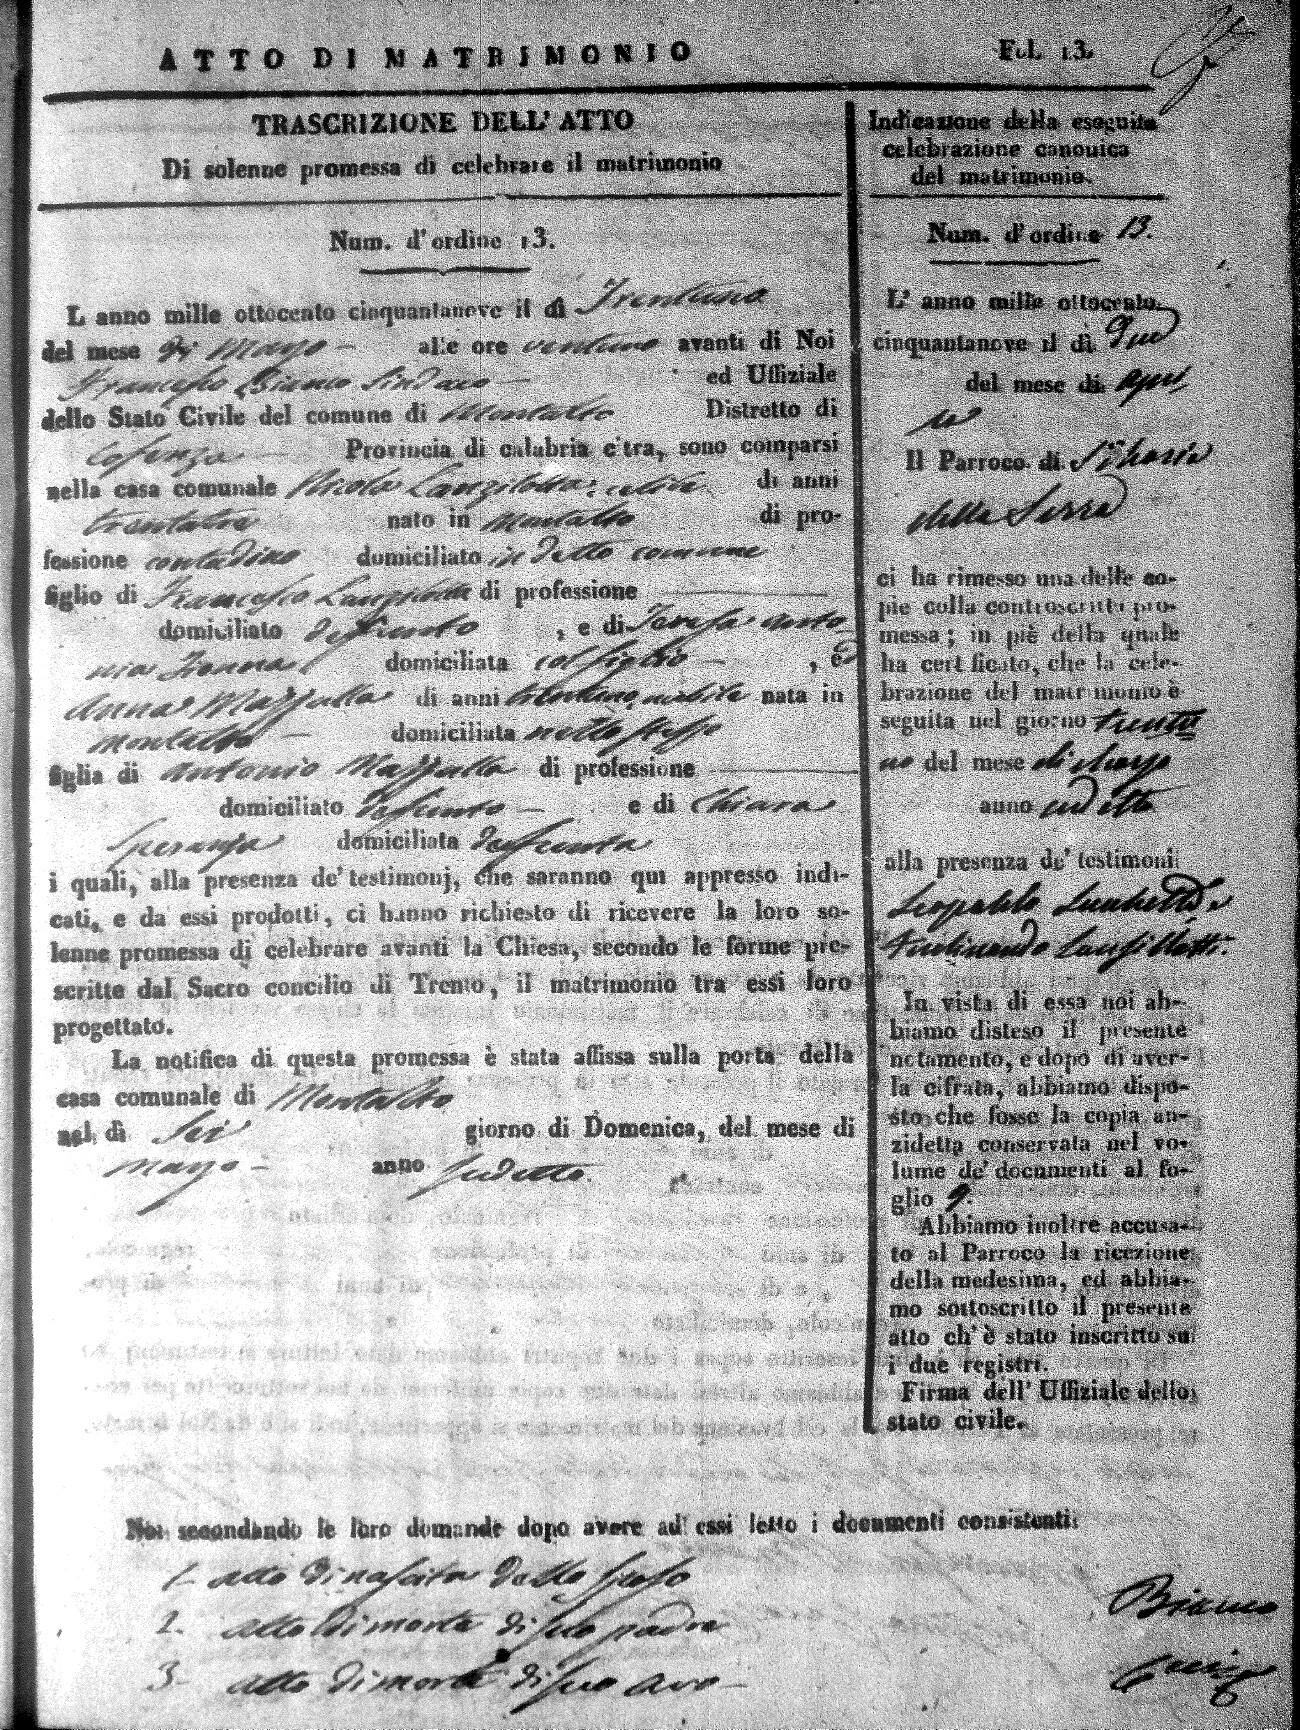 ATTO DI MATRIMONIO Fol. 13.
TRASCRIZIONE DELL' ATTO
Di solenne promessa di celebrare il matrimonio
Num. d' ordine 13.
L anno mille ottocento cinquantanove il di Trentuno
del mese di Mayo - alle ore ventuno avanti di Noi
Francesco Bianco Sindaco - ed Uffiziale
dello Stato Civile del comune di Montalto Distretto di
Cosenza - Provincia di calabria citra, sono comparsi
nella casa comunale Nicola Lanzilotta, celibe di anni
trentatre nato in Montalto di pro-
fessione contadino domiciliato in detto comune
figlio di Francesco Lanzilotta di professione
domiciliato defunto , e di Teresa Anto-
nia domiciliata col figlio - , ed
Anna Mazzulla di anni nubile nata in
Montalto - domiciliata nello stesso
figlia di Antonio Mazzulla di professione
domiciliato defunto - e di Chiara
Speranza domiciliata defunta
i quali, alla presenza de' testimonj, che saranno qui appresso indi-
cati, e da essi prodotti, ci hanno richiesto di ricevere la loro so-
lenne promessa di celebrare avanti la Chiesa, secondo le forme pre-
scritte dal Sacro concilio di Trento, il matrimonio tra essi loro
progettato.
La notifica di questa promessa è stata affissa sulla porta della
casa comunale di Montalto
nel dì Sei giorno di Domenica, del mese di
Mayo - anno sudetto.
Indicazione della eseguita
celebrazione canonica
del matrimonio.
Num. d' ordine 13.
L' anno mille ottocento
cinquantanove il dì Due
del mese di
Il Parroco di S. Maria
della Serra
ci ha rimesso una delle co-
pie colla controscritta pro-
messa; in piè della quale
ha certificato, che la cele-
brazione del matrimonio è
seguita nel giorno trentu
no del mese di Mayo
anno sudetto
alla presenza de' testimoni
Leopoldo e
Ferdinando Lanzillotti.
In vista di essa noi ab-
biamo disteso il presente
notamento, e dopo di aver-
la cifrata, abbiamo dispo-
sto che fosse la copia an-
zidetta conservata nel vo-
lume de' documenti al fo-
glio 9.
Abbiamo inoltre accusa-
to al Parroco la ricezione
della medesima, ed abbia-
mo sottoscritto il presente
atto ch' è stato inscritto sui
i due registri.
Firma dell' Uffiziale dello
stato civile.
Noi secondando le loro domande dopo avere ad essi letto i documenti consistenti:
1- atto di nascita dello sposo
2. atto di morte di suo padre
3- atto di morte di suo avo -
Bianco